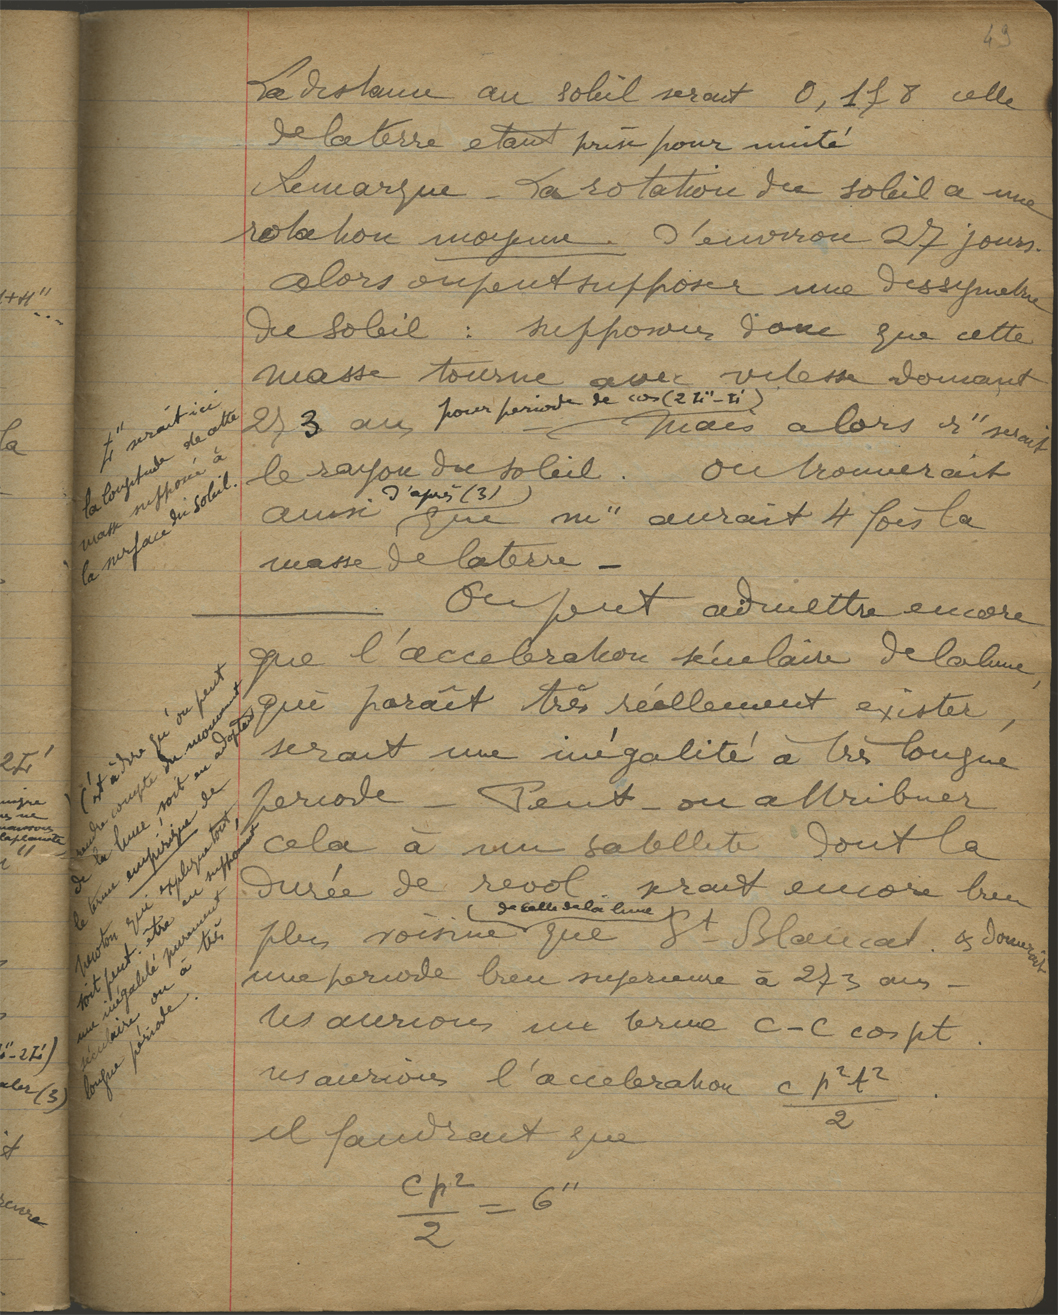 49
La distance au soleil serait 0,158 celle
de la terre etant prise pour unité
Remarque – La rotation du soleil a une
rotation moyenne. d'environ 27 jours.
alors on peut supposer une dissymetrie
du soleil : supposons donc que cette
masse tourne avec vitesse donnant
273 ans pour periode de cos(2L"-L') Mais alors r" serait
le rayon du soleil. On trouverait
ainsi d'après (3) que m" aurait 4 fois la
masse de la terre –
On peut admettre encore
que l'acceleration séculaire de la lune,
qui paraît très réellement exister,
serait une inégalité à très longue
periode – Peut-on attribuer
cela à un satellite dont la
durée de revol. serait encore bien
plus voisine de celle de la lune que St Blancat. & donnerait
une periode bien superieure à 273 ans –
ns aurions un terme c-c cos pt.
ns aurions l'acceleration c p²t² / 2 .
il faudrait que
cp² / 2 = 6"
L" serait ici
la longitude de cette
masse supposée à
la surface du soleil.
C'est à dire qu'on peut
rendre compte du mouvement
de la lune, soit en adoptant
le terme empirique de
newton qui explique tout,
soit peut-être en supposant
une inégalité purement
séculaire ou à très
longue période.
la
2L'
L"-2L')
(3)